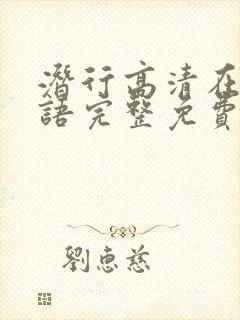 潛行高清在
語完整免費
劉惠慈